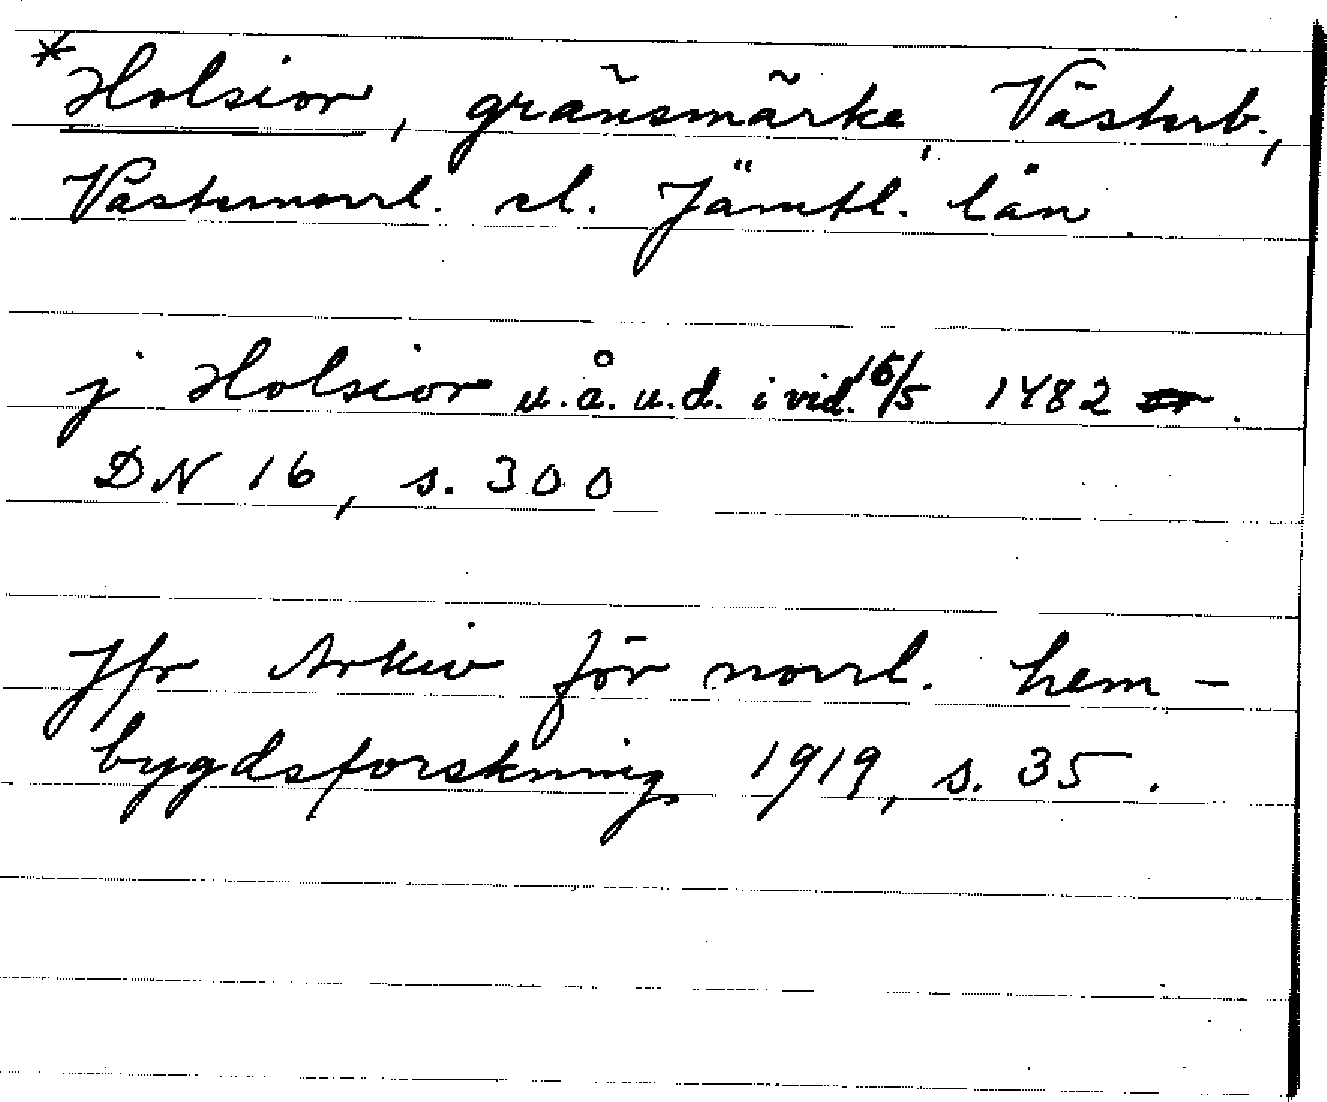 *Holsior, gränsmärke, Västerb.,
Västernorrl. el. Jämtl. län.
j Holsior u.å.u.d. i vid. 16/5 1482.
DN 16, s. 300
Jfr Arkiv för norrl. hem-
bygdsforskning 1919, s. 35.